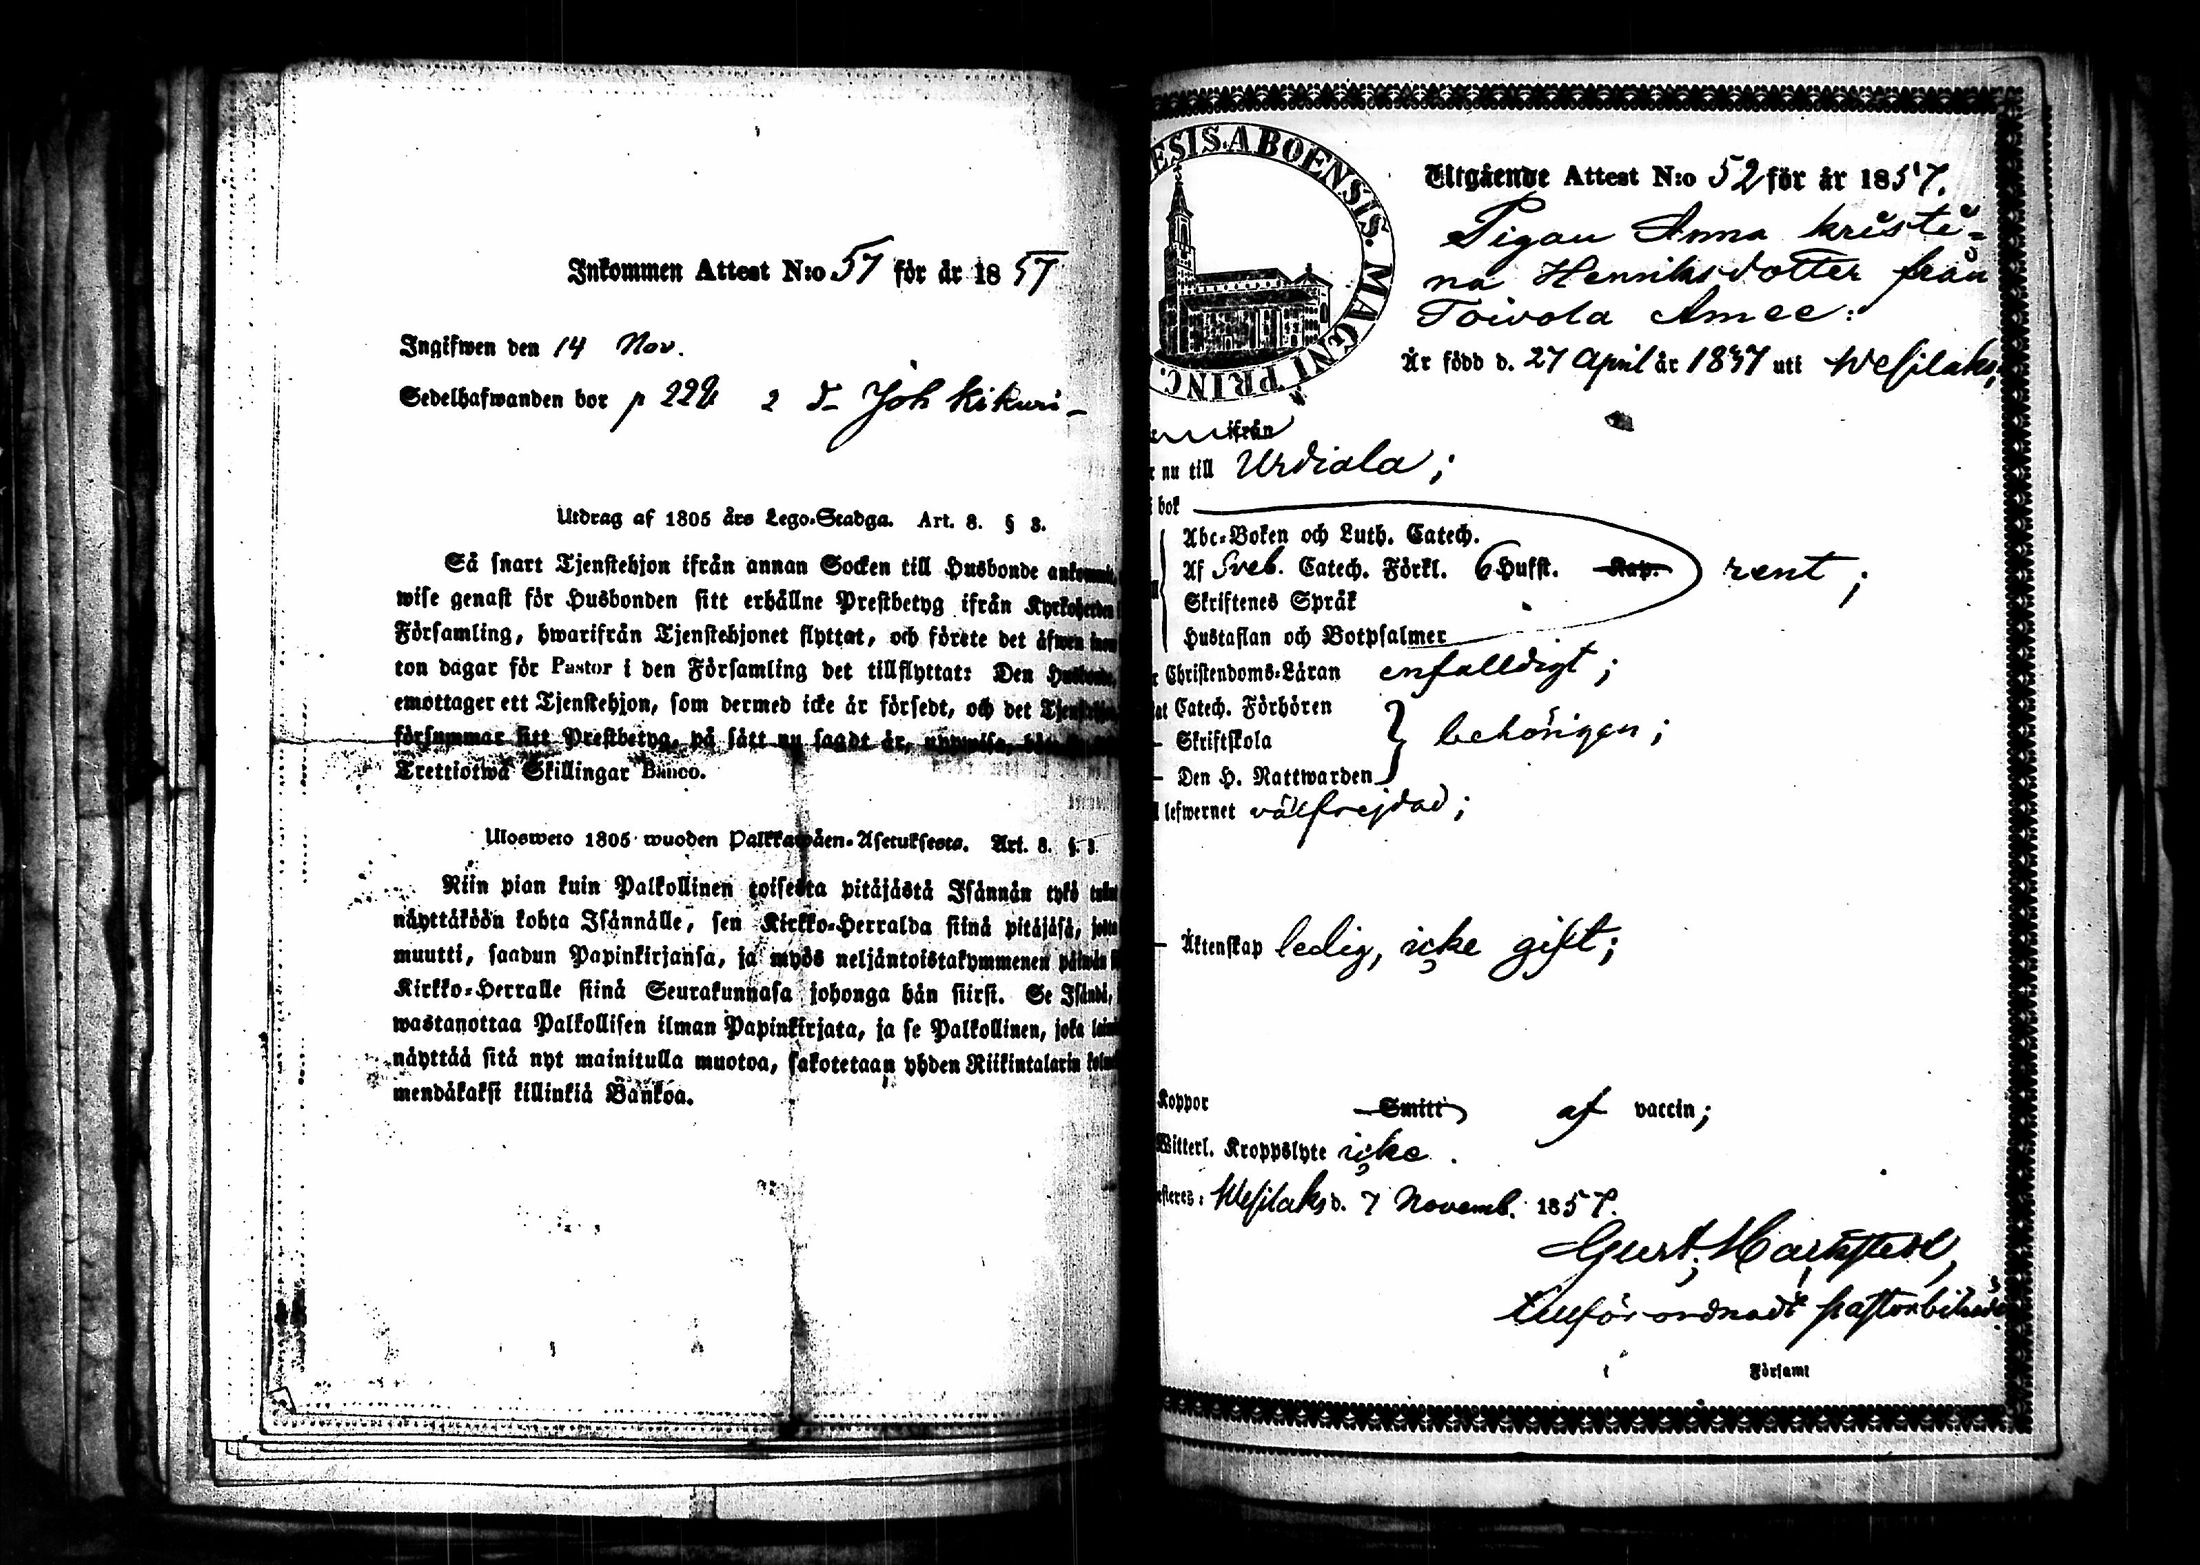 Inkommen Attest N:o 57 för år 1857
Ingifwen den 14 Nov.
Sedelhafwanden bor p 222 2 d– Joh Kikuri–
Utdrag af 1805 års Lego-Stadga. Art. 8. § 3.
Så snart Tjenstehjon ifrån annan Socken till Husbonde ankommit,
wise genast för Husbonden sitt erhållne Prestbetyg ifrån Kyrkoherden
Församling, hwarifrån Tjenstehjonet flyttat, och förete det äfwen inom
ton dagar för Pastor i den Församling det tillflyttat: Den Husbonde,
emottager ett Tjenstehjon, som dermed icke är försedt, och det
försummar sitt Prestbetyg, på sätt nu sagdt är, uppwisa,
Trettiotwå Skillingar Banco.
Ulosweto 1805 wuoden Palkkawäen-Asetuksesta. Art. 8. §. 3.
Niin pian kuin Palkollinen toisesta pitäjästä Isännän tykö
näyttäköön kohta Isännälle, sen Kirkko-Herralda siinä pitäjäsä,
muutti, saadun Papinkirjansa, ja myös neljäntoistakymmenen
Kirkko-Herralle siinä Seurakunnasa johonga hän siirsi. Se Isändä,
wastanottaa Palkollisen ilman Papinkirjata, ja se Palkollinen, joka
näyttää sitä nyt mainitulla muotoa, sakotetaan yhden Riikintalarin
mendäkaksi killinkiä Bankoa.
ESIS. ABOENSIS. MAGNI PRINC.
Utgående Attest N:o 52 för år 1857.
Pigan Anna Kristi=
na Henriksdotter från
Toivola
Är född d. 27 April år 1837 uti Wesilaks;
ifrån
nu till Urdiala;
bok
Abc-Boken och Luth. Catech.
Af Sveb. Catech. Förkl. 6 Hufst. Kap. rent;
Skriftenes Språk
Hustaflan och Botpsalmer
Christendoms-Läran enfalldigt;
Catech. Förhören
– Skriftskola behörigen;
– Den H. Nattwarden
lefwernet välfrejdad;
– Äktenskap ledig, icke gift;
Koppor Smitt af vaccin;
Witterl. Kroppslyte icke.
Wesilaks d. 7 Novemb. 1857.
Gust.
tillförordnadt pastorsbiträde
Församl